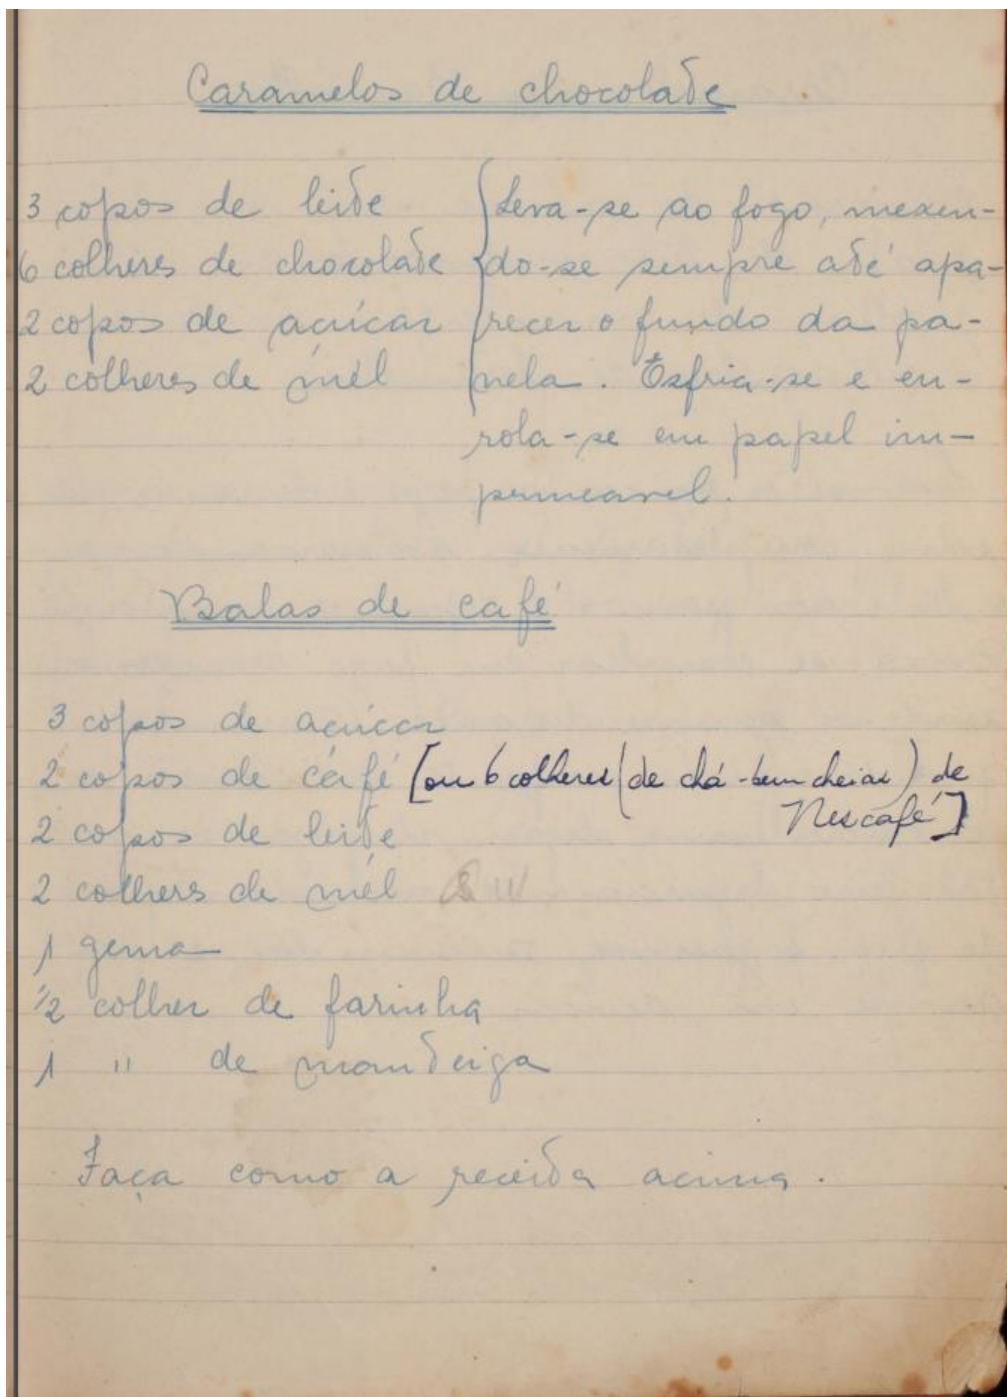 Caramelos de chocolate
3 copos de leite
6 colheres de chocolate
2 copos de açúcar
2 colheres de mél
Leva-se ao fogo, mexen-
do-se sempre até apa-
recer o fundo da pa-
nela. Esfria-se e en-
rola-se em papel im-
permeavel.
Balas de café
3 copos de açúcar
2 copos de café [ou 6 colheres (de chá - bem cheias) de
Nescafé]
2 copos de leite
2 colhers de mél
1 gema
1/2 colher de farinha
1 " de manteiga
Faça como a receita acima.